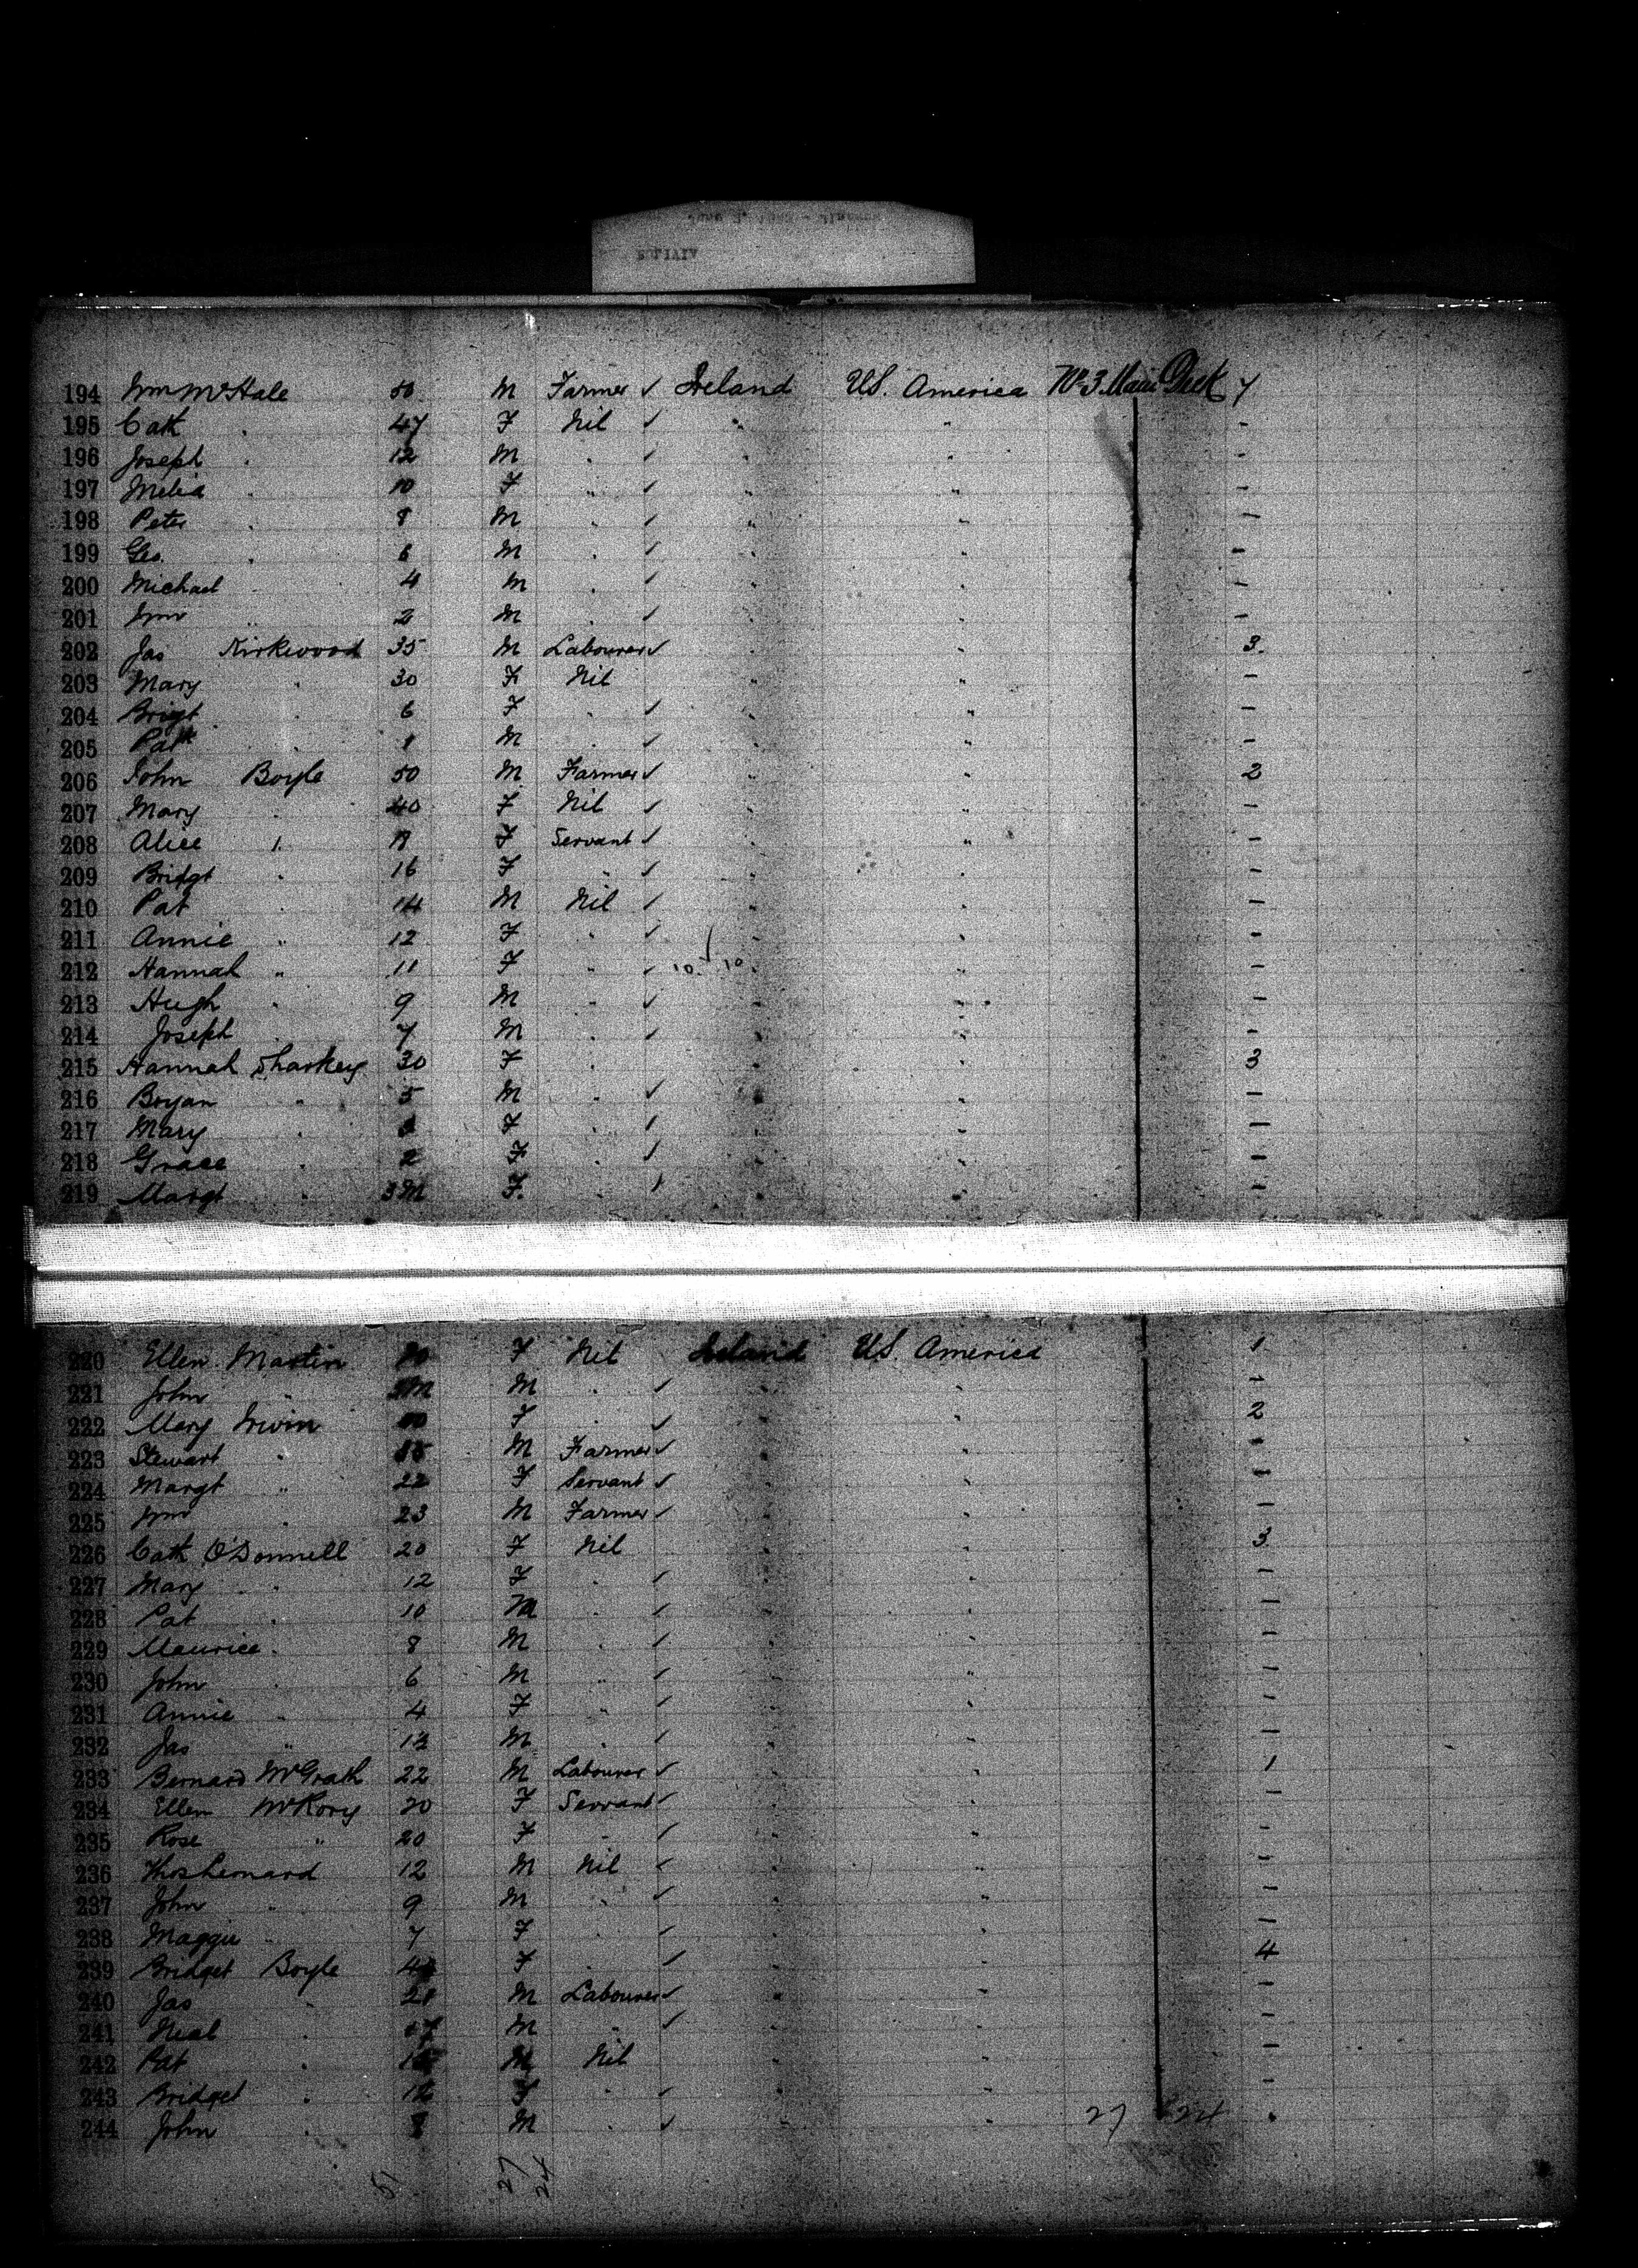 194 Wm McHale 50 M Farmer ✓ Ireland U.S. America No 3. Main Deck 7
195 Cath " 47 F Nil ✓ " " -
196 Joseph " 12 M " ✓ " " -
197 Melia " 10 F " ✓ " " -
198 Peter " 8 M " ✓ " " -
199 Geo. " 6 M " ✓ " " -
200 Michael " 4 M " ✓ " " -
201 Wm " 2 M " ✓ " " -
202 Jas Kirkwood 35 M Labourer ✓ " " 3.
203 Mary " 30 F Nil " " -
204 Brigt " 6 F " ✓ " " -
205 Patk " M " ✓ " " -
206 John Boyle 50 M Farmer ✓ " " 2
207 Mary " 40 F Nil ✓ " " -
208 Alice " 18 F Servant ✓ " " -
209 Bridgt " 16 F " ✓ " " -
210 Pat " 14 M Nil ✓ " " -
211 Annie " 12 F " ✓ " " -
212 Hannah " 11 F " ✓ 10 ✓ 10 " " -
213 Hugh " 9 M " ✓ " " -
214 Joseph " 7 M " ✓ " " -
215 Hannah Sharkey 30 F " " " 3
216 Bryan " 5 M " ✓ " " -
217 Mary " F " ✓ " " -
218 Grace " 2 F " ✓ " " -
219 Margt " 3M F " ✓ " " -
220 Ellen Martin F Nil Ireland U.S. America 1
221 John " M " ✓ " " -
222 Mary Irwin F " ✓ " " 2
223 Stewart " M Farmer ✓ " " -
224 Margt " 22 F Servant ✓ " " -
225 Wm " 23 M Farmer ✓ " " -
226 Cath O'Donnell 20 F Nil " " 3
227 Mary " 12 F " ✓ " " -
228 Pat " 10 M " ✓ " " -
229 Maurice " 8 M " ✓ " " -
230 John " 6 M " ✓ " " -
231 Annie " 4 F " ✓ " " -
232 Jas " M " ✓ " " -
233 Bernard McGrath 22 M Labourer ✓ " " 1
234 Ellen McRory 20 F Servant ✓ " " -
235 Rose " 20 F " ✓ " " -
236 Thos Lernard 12 M Nil ✓ " " -
237 John " 9 M " ✓ " " -
238 Maggie " 7 F " ✓ " " -
239 Bridget Boyle F " ✓ " " 4
240 Jas " M Labourer ✓ " " -
241 Neal " M " ✓ " " -
242 Pat " M Nil " " -
243 Bridget " 12 F " ✓ " " -
244 John " 8 M " ✓ " " 27 24
51 27 24